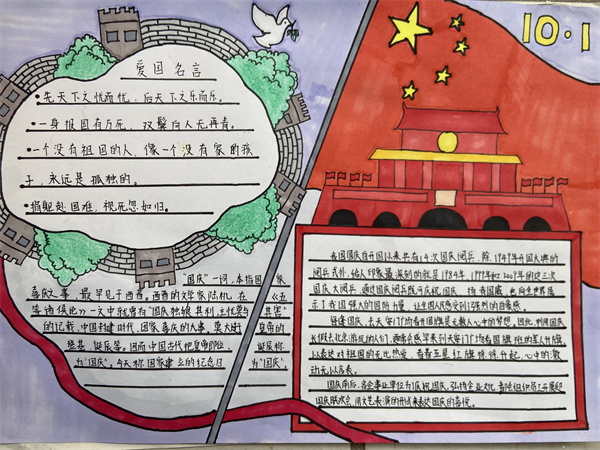 爱国名言
•先天下之忧而忧，后天下之乐而乐。
•一身报国有万死，双鬓向人无再青。
•一个没有祖国的人，像一个没有家的孩
子，永远是孤独的。
•捐躯赴国难，视死忽如归。
"国庆"一词，本指国家
喜庆之事，最早见于西晋。西晋的文学家陆机在《五
等诸侯论》一文中就曾有"国庆独飨其利，主忧莫与其害"
的记载、中国封建时代、国家喜庆的大事，莫大过
皇帝的
登基、诞辰等。因而中国古代把皇帝即位
诞辰称
为"国庆"。今天称国家建立的纪念日
为"国庆"。
10·1
我国国庆自开国以来共有14次国庆阅兵，除1949年开国大典的
阅兵式外，给人印象最深刻的就是1984年、1999年和2009年的这三次
国庆大阅兵。通过国庆阅兵既可庆祝国庆 扬我国威，也向全世界展
示了我国强大的国防力量，让全国人民感受到了强烈的自豪感。
每逢国庆，去天安门广场看升国旗是无数人心中的梦想。因此，利用国庆
长假去北京游玩的人们，通常会感早来到天安门广场看国旗班的军人升旗，
以表达对祖国的无比热爱，看着五星红旗冉冉升起，心中的激
动无以言表。
国庆前后，各企事业单位为庆祝国庆，弘扬企业文化
国庆联欢会，用文艺表演的形式来表达国庆的喜悦。